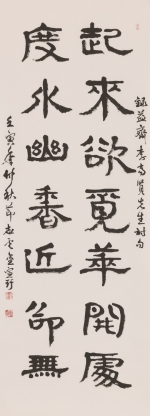 錄益齋李齊賢先生詩句
起來欲覓華開處
度水幽香近卻無
壬寅仲秋節